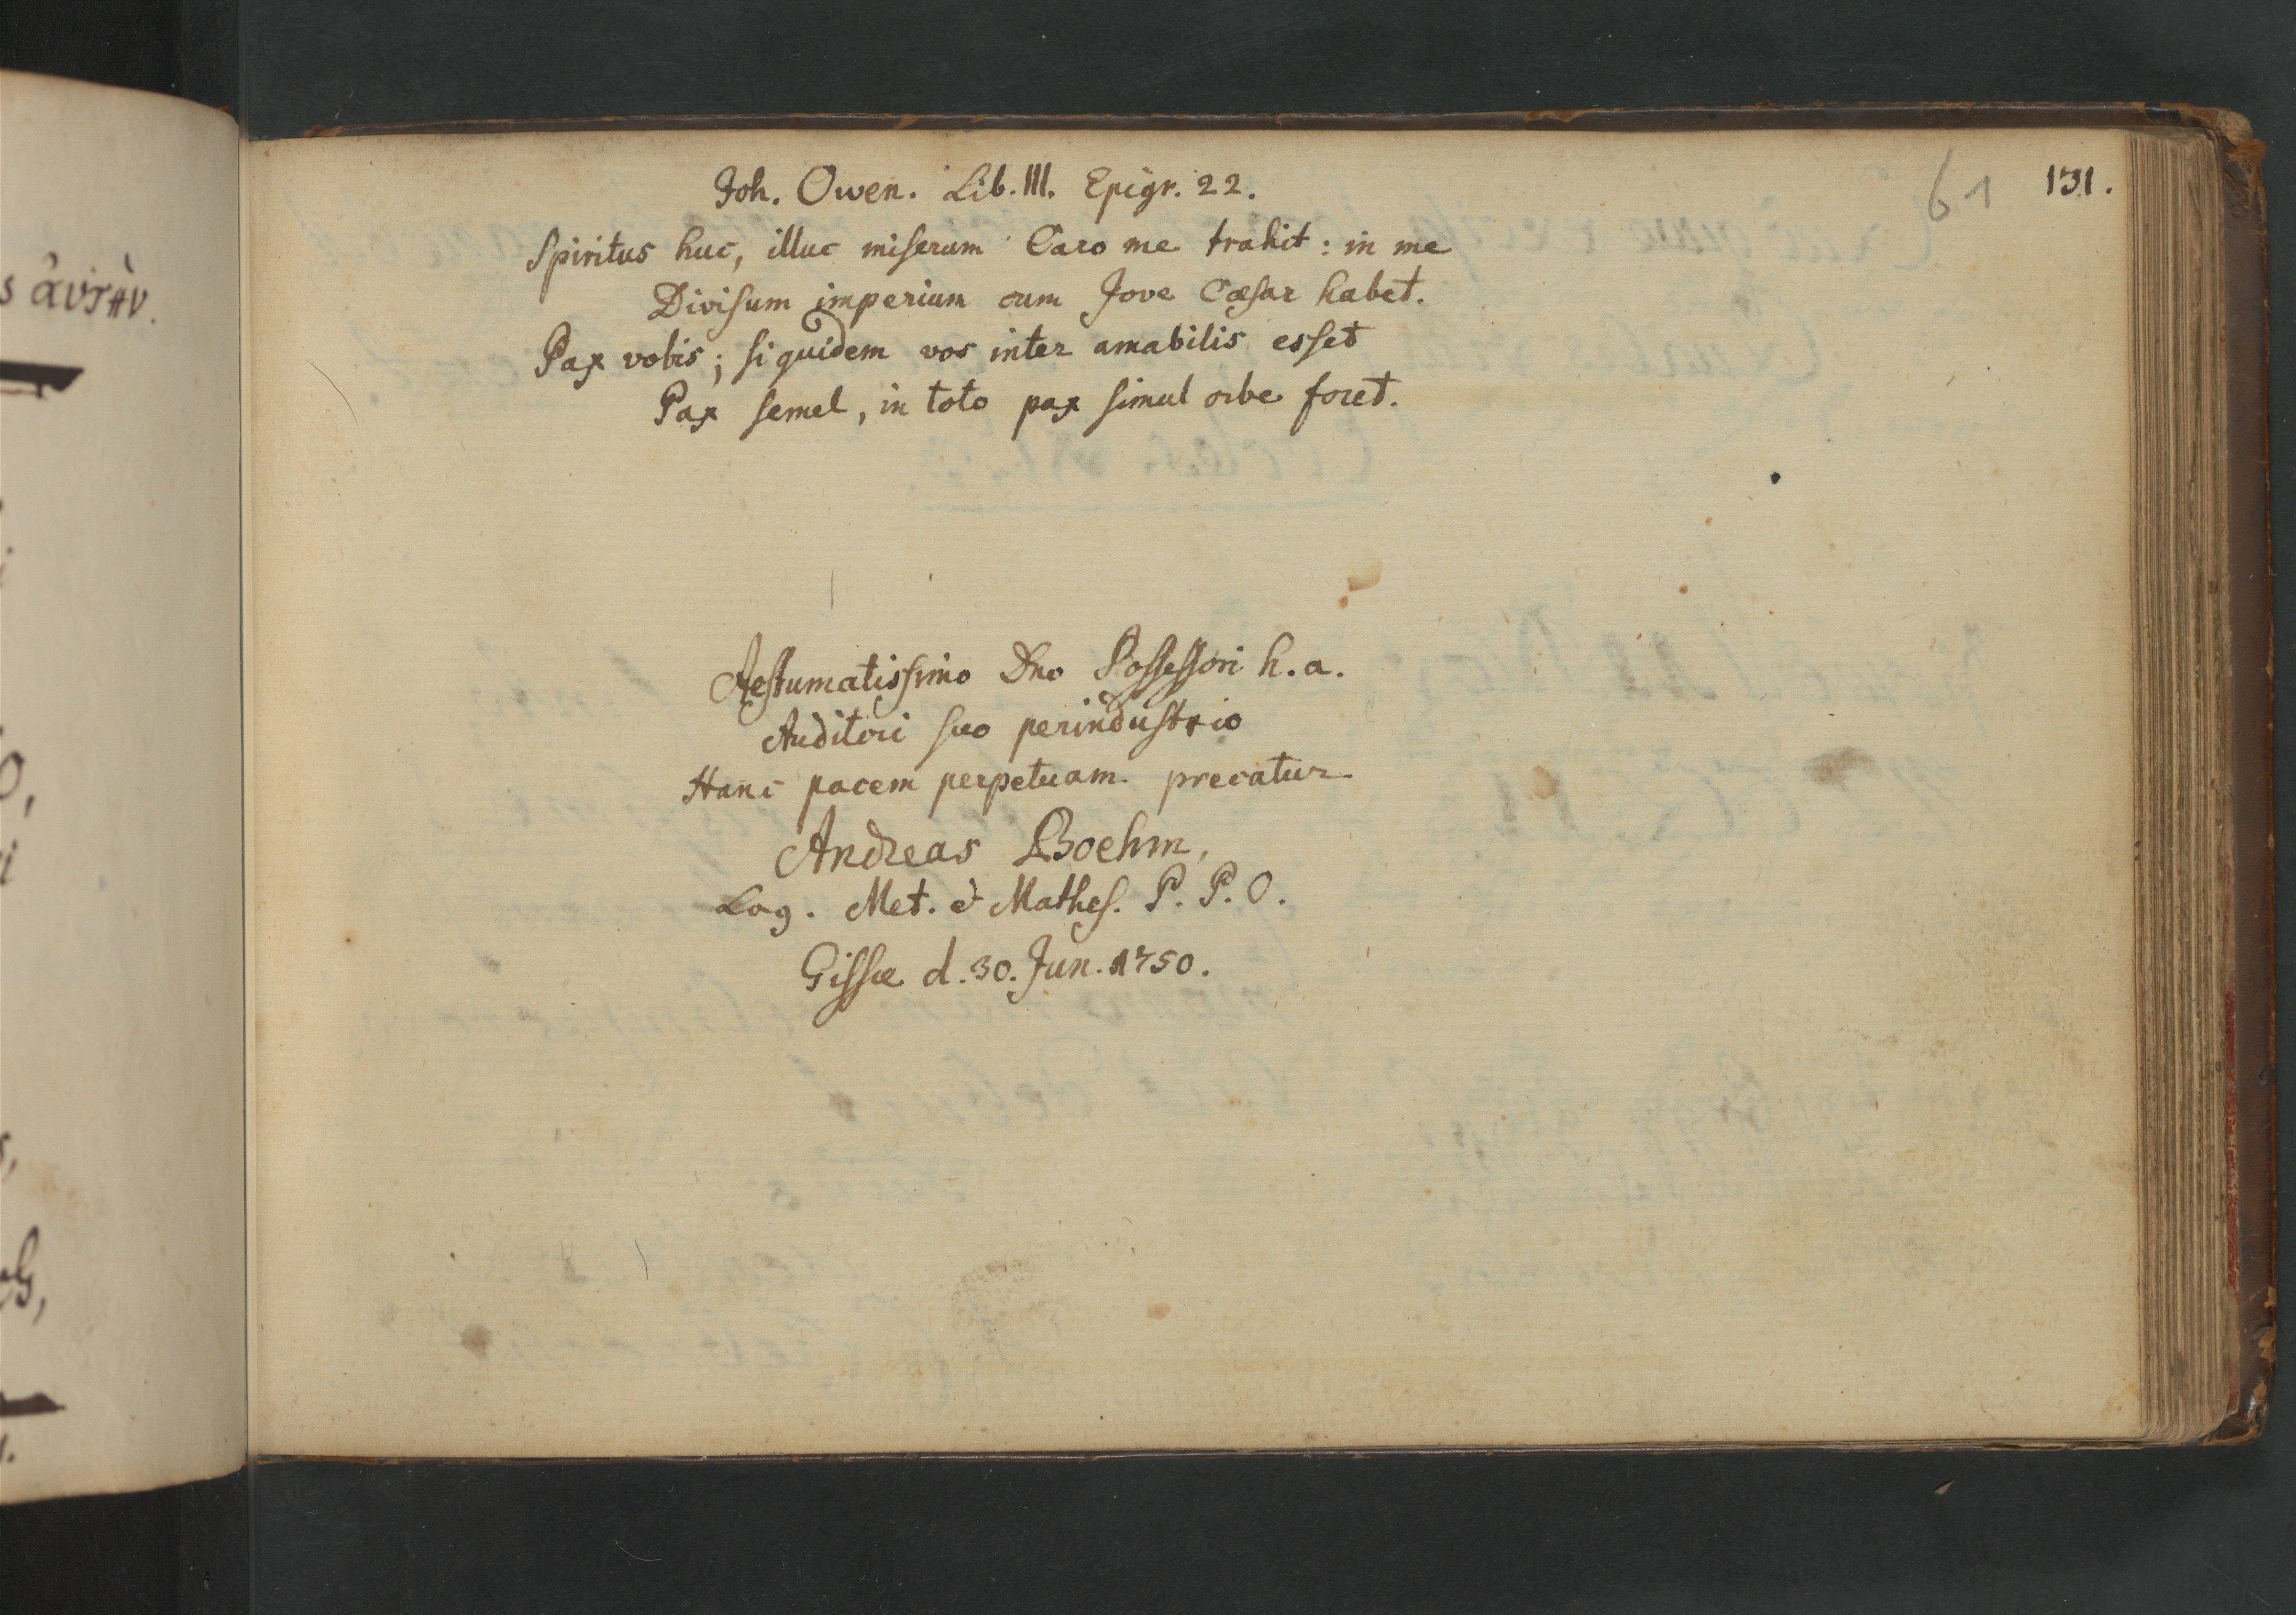 61 131.
Joh. Owen. Lib. III. Epigr. 22.
Spiritus huc, illuc miserum Caro me trahit: in me
Divisum imperium cum Jove Cæsar habet.
Pax vobis; si quidem vos inter amabilis esset
Pax semel, in toto pax simul orbe foret.
Aestumatissimo Dno Possessori h. a.
Auditori suo perindustrio
Hanc pacem perpetuam precatur
Andreas Boehm,
Log. Met. & Mathes. P. P. O.
Gissæ d. 30. Jun. 1750.